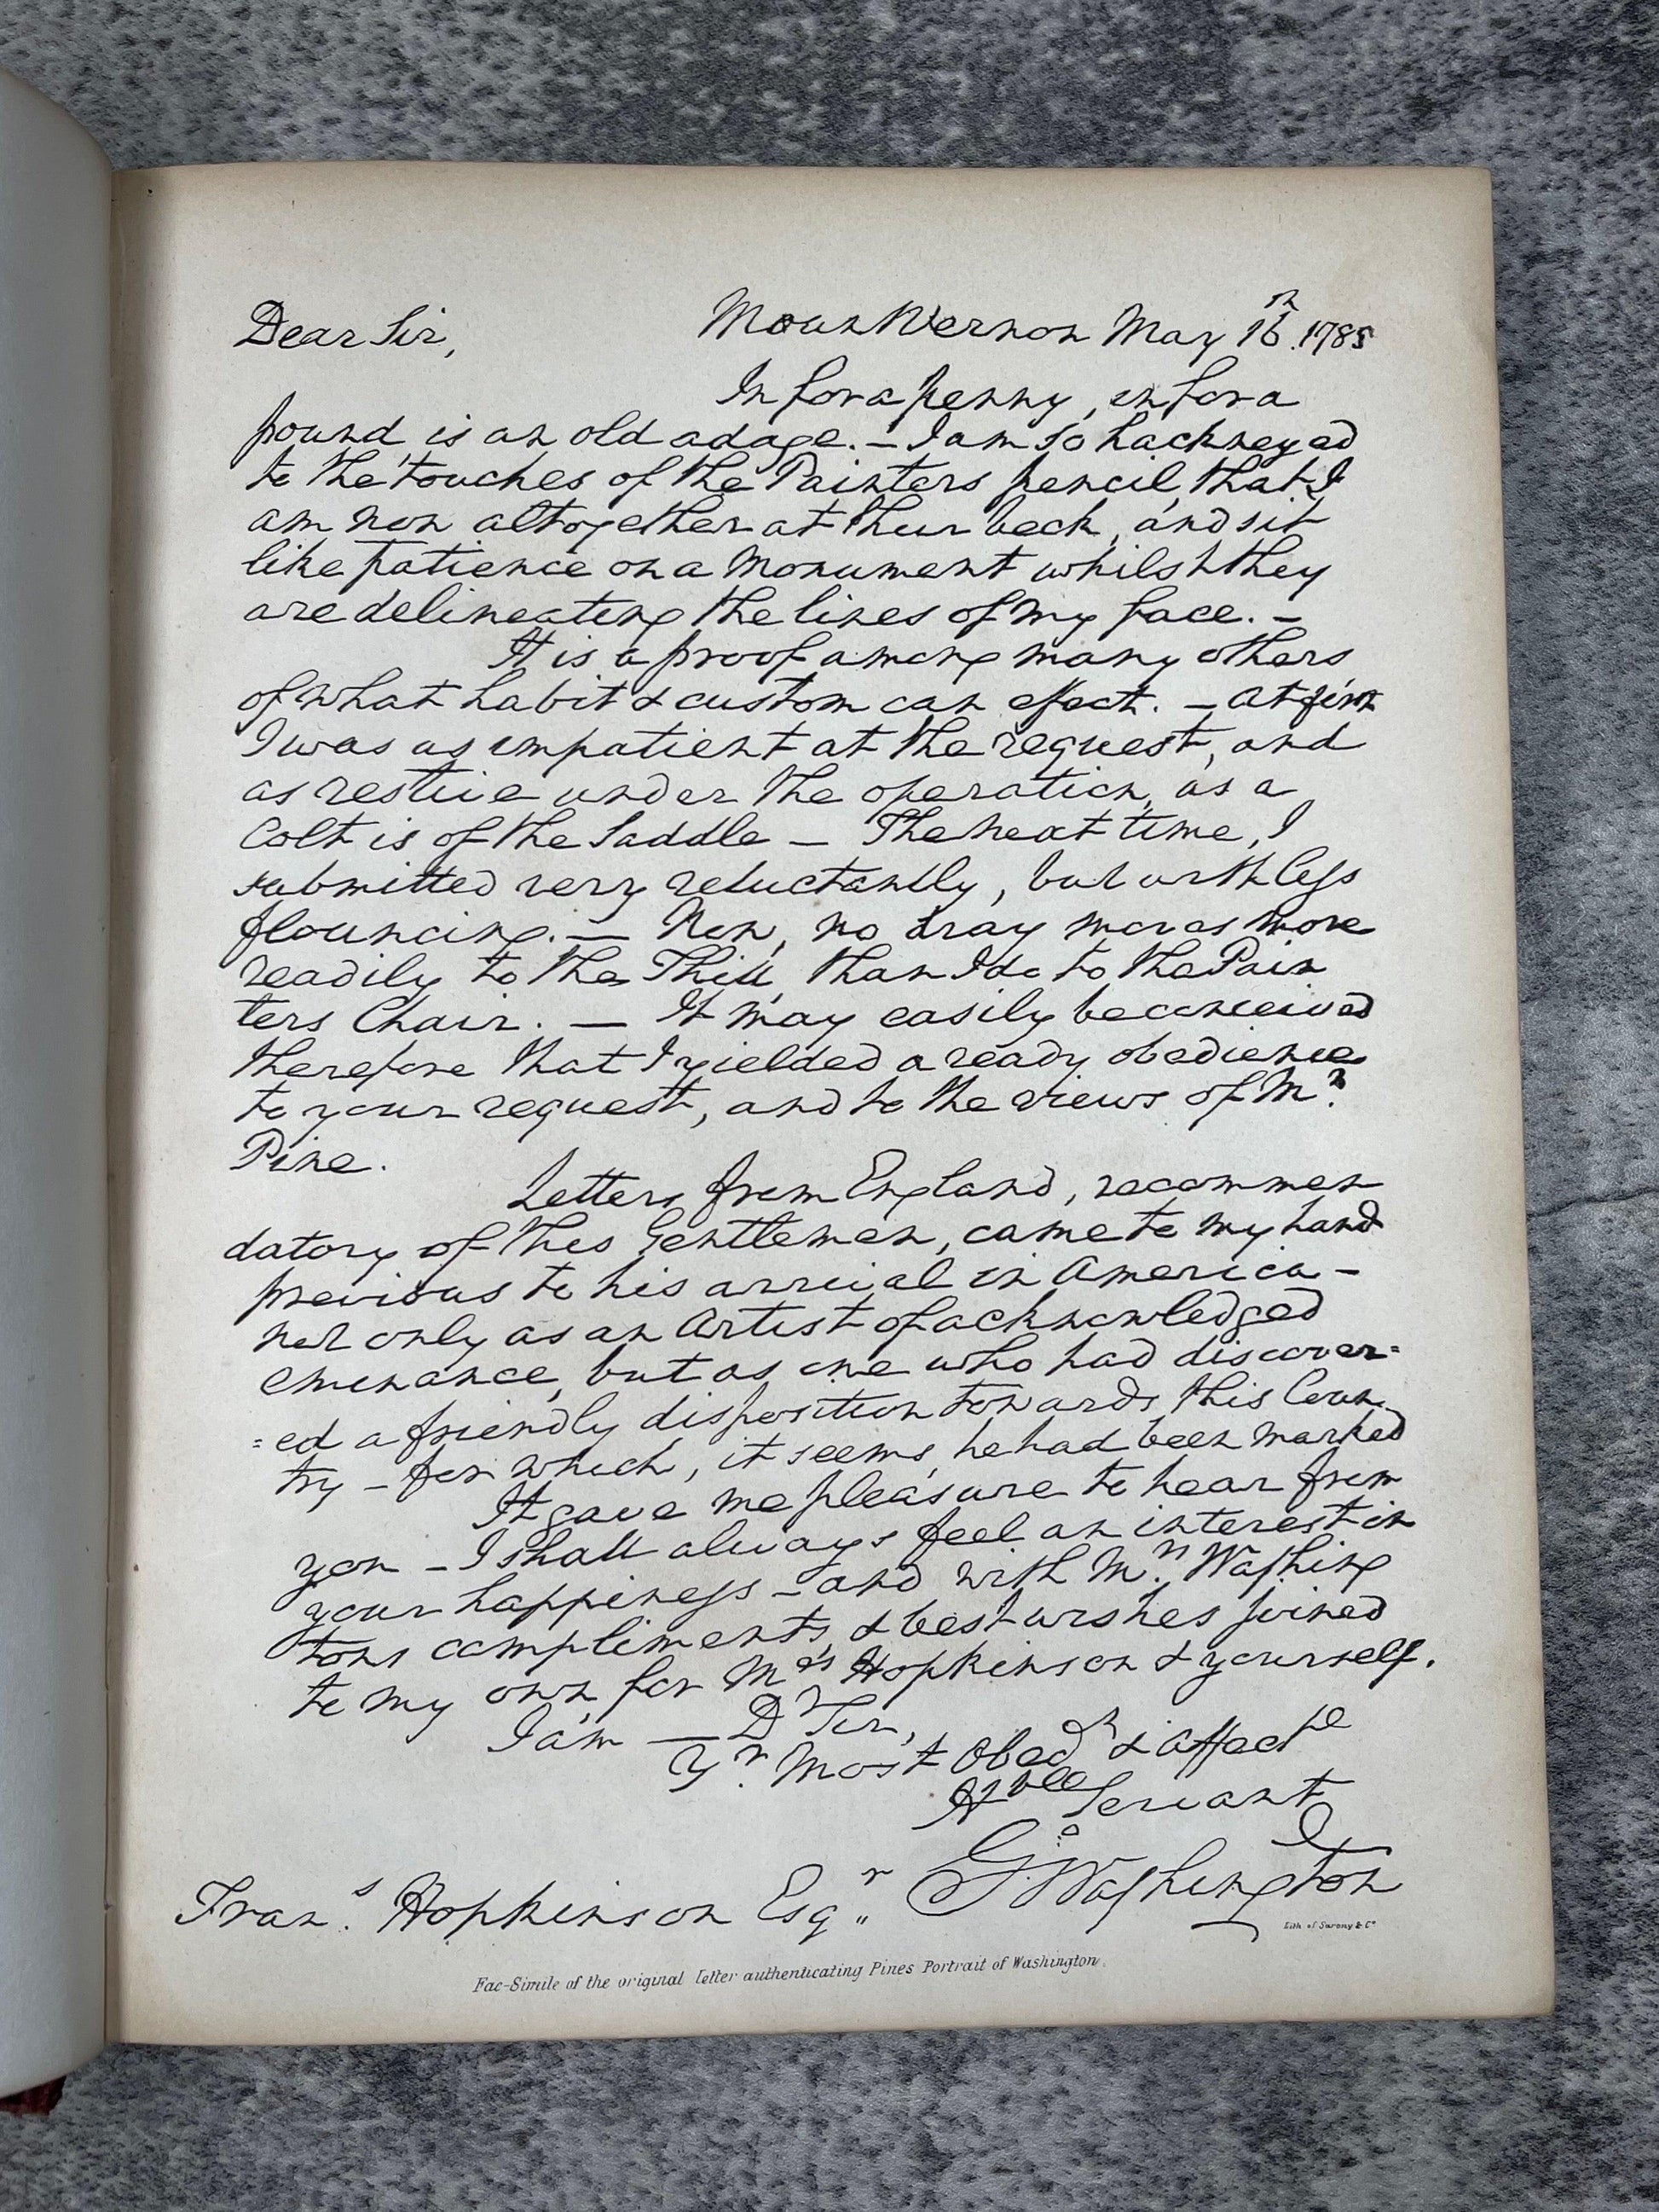 Dear Sir, Mount Vernon May 16th. 1785
In for a penny, in for a
pound is an old adage. — I am so hackneyed
to the touches of the Painters pencil, that I
am now altogether at their beck, and sit
like patience on a Monument whilst they
are delineating the lines of my face. —
It is a proof among many others
of what habit & custom can effect. — At first
I was as impatient at the request, and
as restive under the operation, as a
Colt is of the Saddle — The next time, I
submitted very reluctantly, but with less
flouncing. — Now, no dray moves more
readily to the Thill, than I do to the Pain
ters Chair. — It may easily be conceived
therefore that I yielded a ready obedience
to your request, and to the views of Mr.
Pine.
Letters from England, recommen
datory of this Gentleman, came to my hand
previous to his arrival in America —
not only as an Artist of acknowledged
eminance, but as one who had discover=
=ed a friendly disposition towards this Coun
try — for which, it seems, he had been marked
It gave me pleasure to hear from
you — I shall always feel an interest in
your happiness — and with Mrs. Washing
tons compliments, & best wishes joined
to my own for Mrs Hopkinson & yourself.
I am — Dr Sir,
Yr. Most Obedt & Affecte
Hble Servant
Go: Washington
Frans. Hopkinson Esqr
Lith of Sarony & Co
Fac-Simile of the original letter authenticating Pines Portrait of Washington.